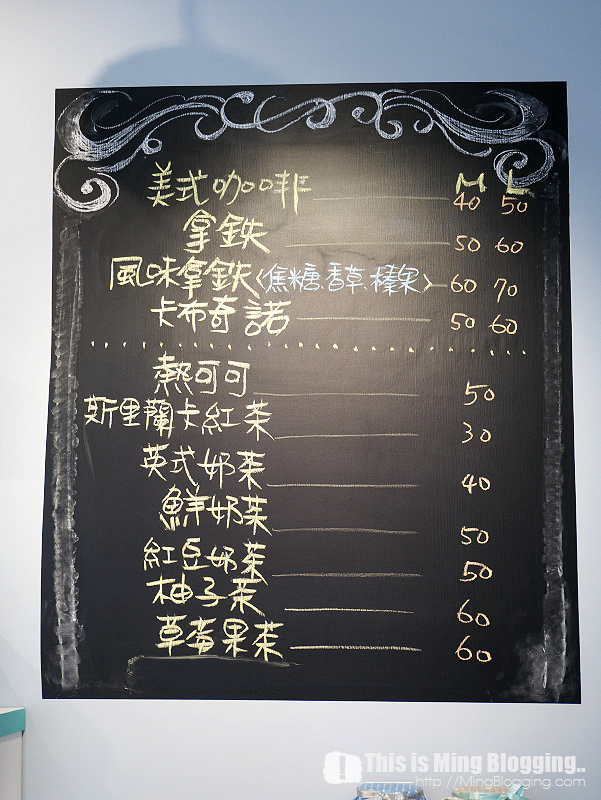 M L
美式咖啡 40 50
拿鐵 50 60
風味拿鐵(焦糖、香草、榛果) 60 70
卡布奇諾 50 60
熱可可 50
斯里蘭卡紅茶 30
英式奶茶 40
鮮奶茶 50
紅豆奶茶 50
柚子茶 60
草莓果茶 60
This is Ming Blogging..
http://MingBlogging.com